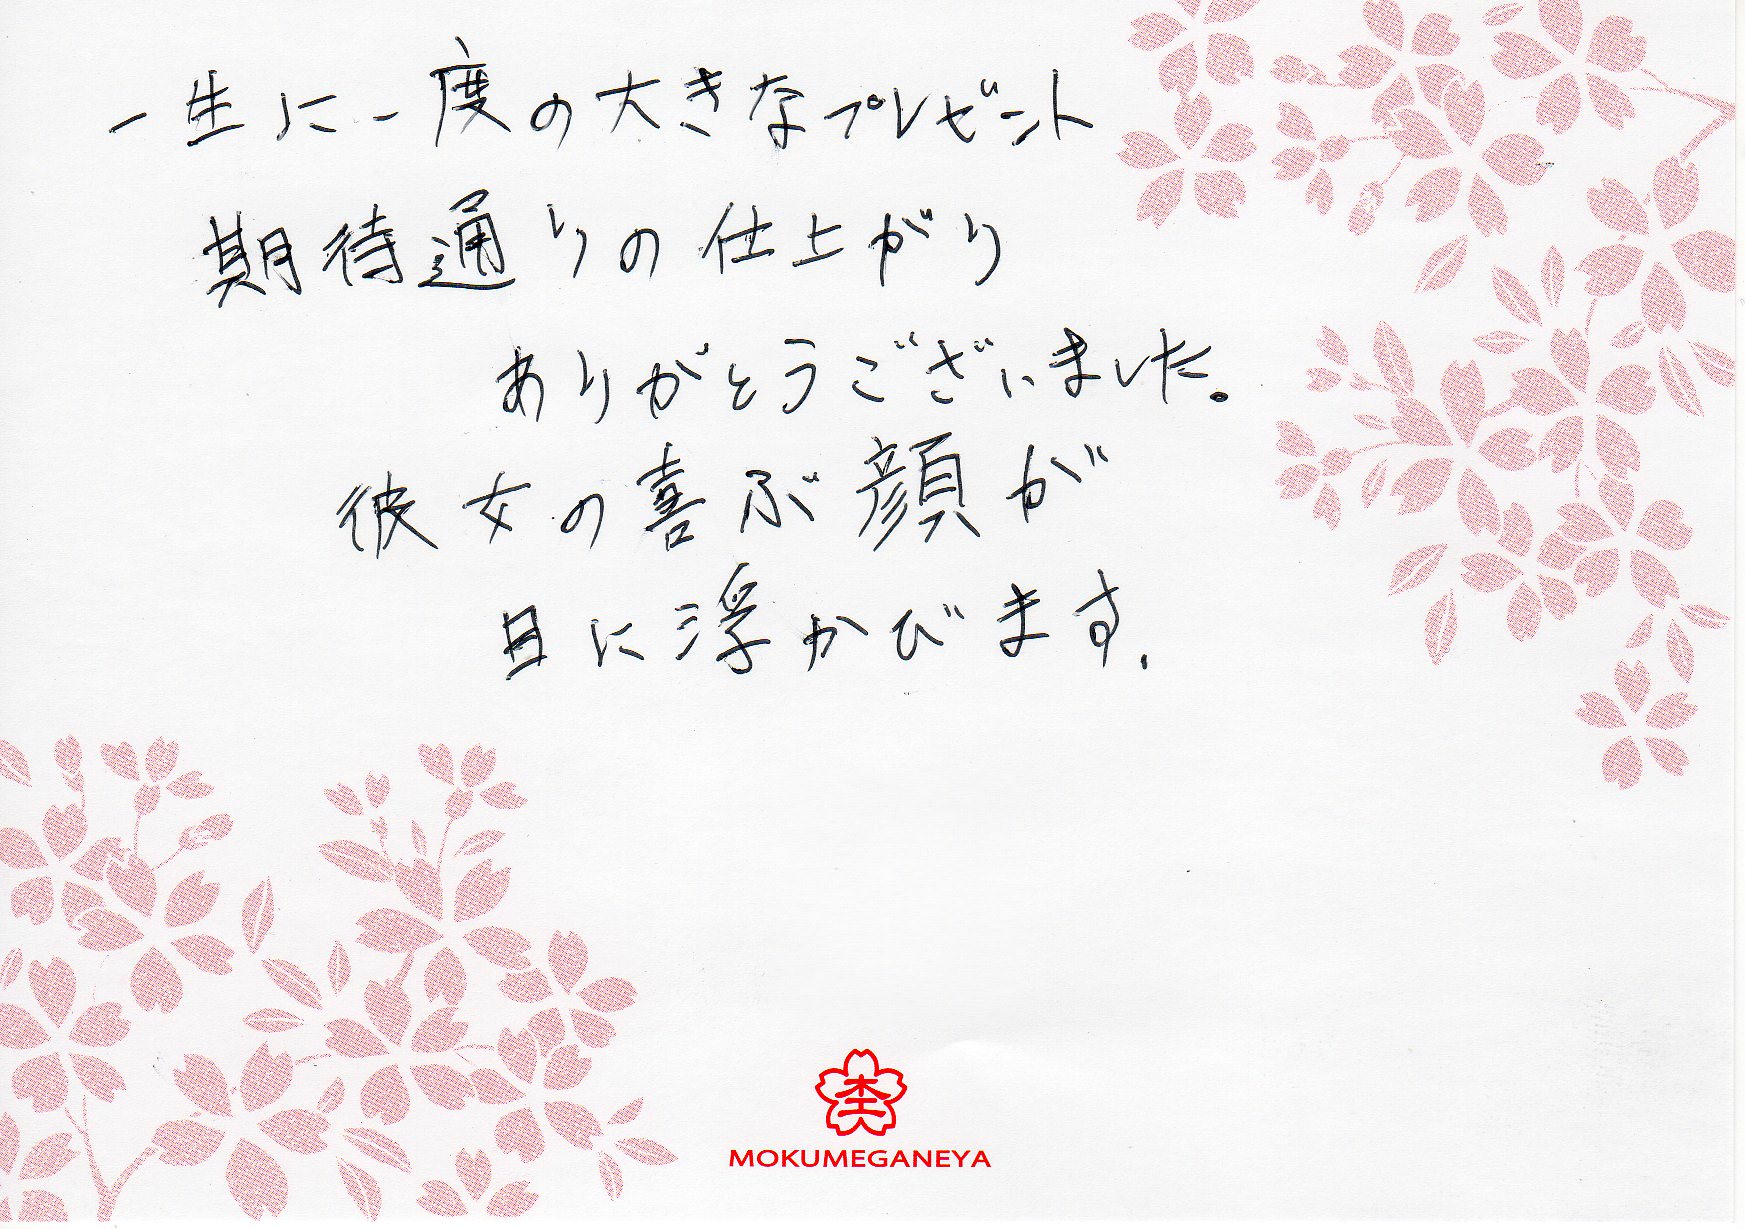 一生に一度の大きなプレゼント
期待通りの仕上がり
ありがとうございました。
彼女の喜ぶ顔が
目に浮かびます.
杢
MOKUMEGANEYA